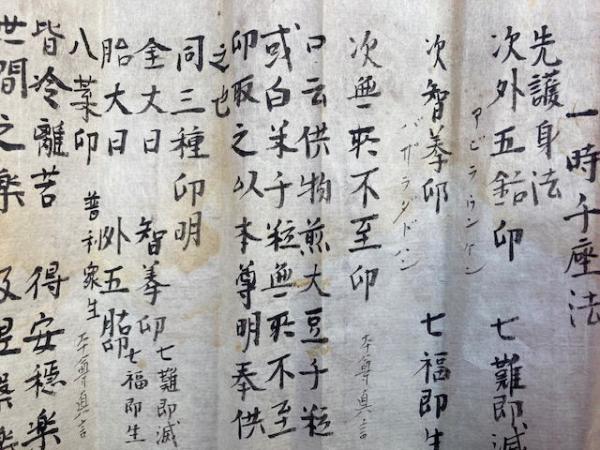 一時千座法
先護身法
次外五鈷印 七難即滅
アビラウンケン
次智拳印 七福即生
バザラダドバン
次無所不至印 本尊真言
口云供物煎大豆子粒
或白米千粒無所不至
印取之以本尊明奉供
之也
同三種印明
金大日 智拳印 七難即滅
胎大日 外五股印 七福即生
八葉印 普利衆生 本尊真言
皆冷離苦 得安穏楽
世間之楽 及